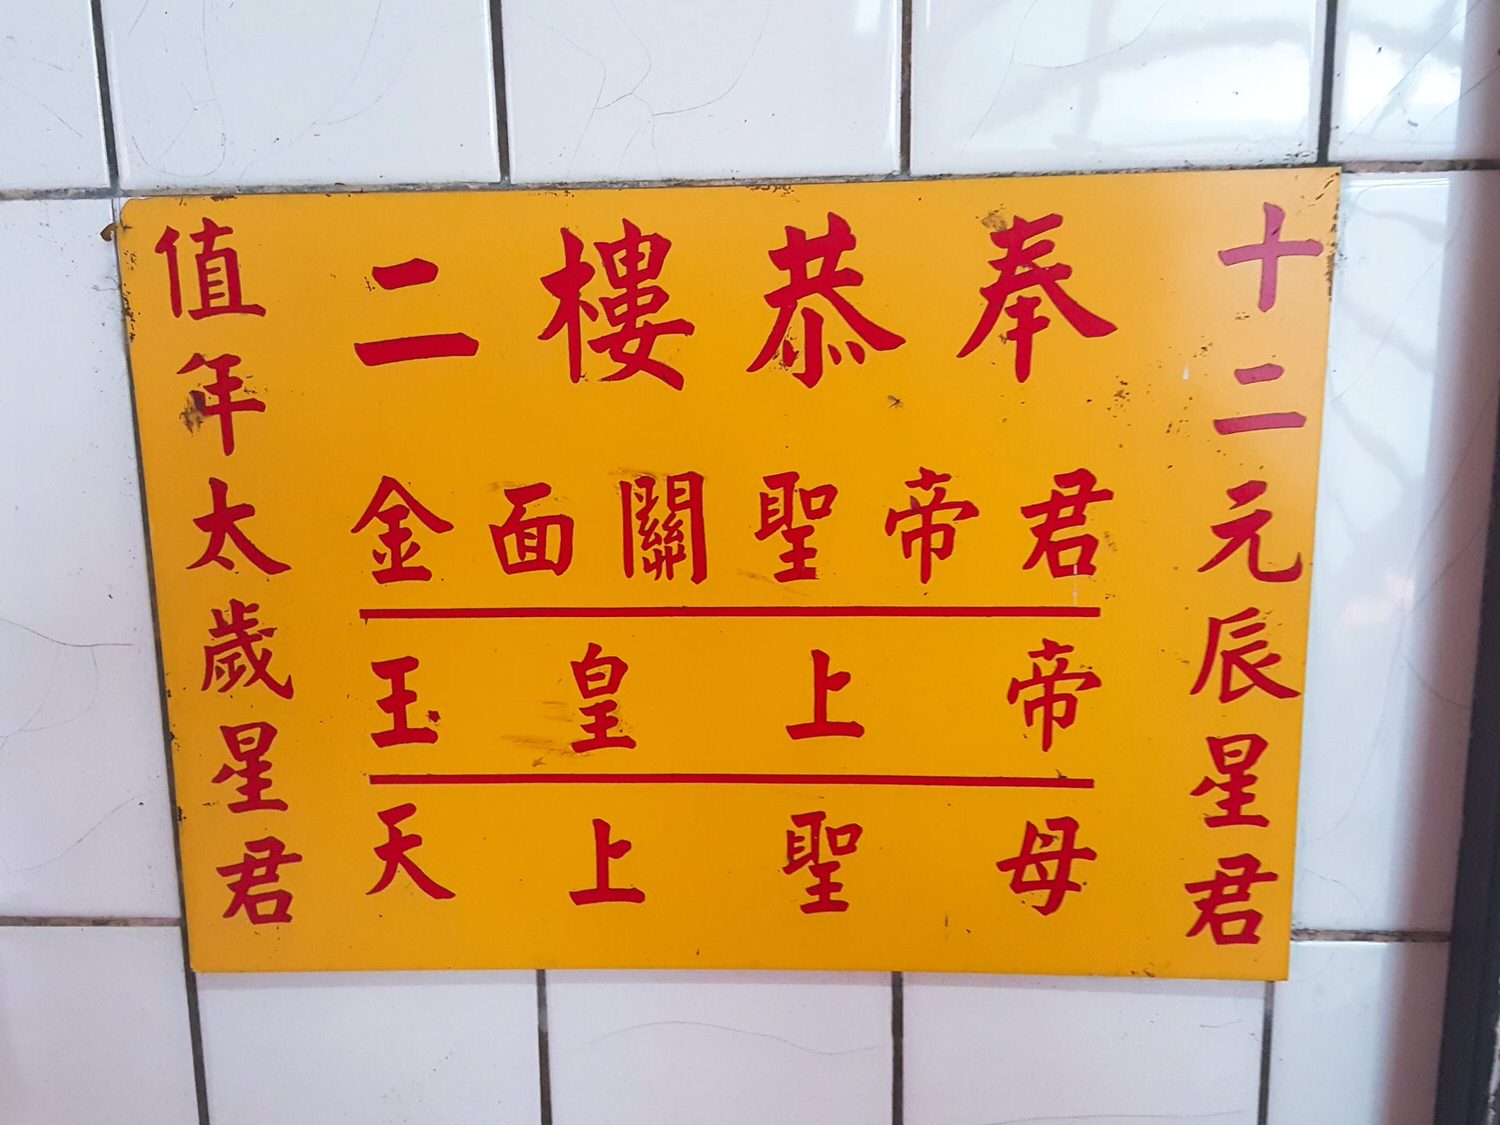 二樓恭奉
金面關聖帝君
玉皇上帝
天上聖母
十二元辰星君
值年太歲星君